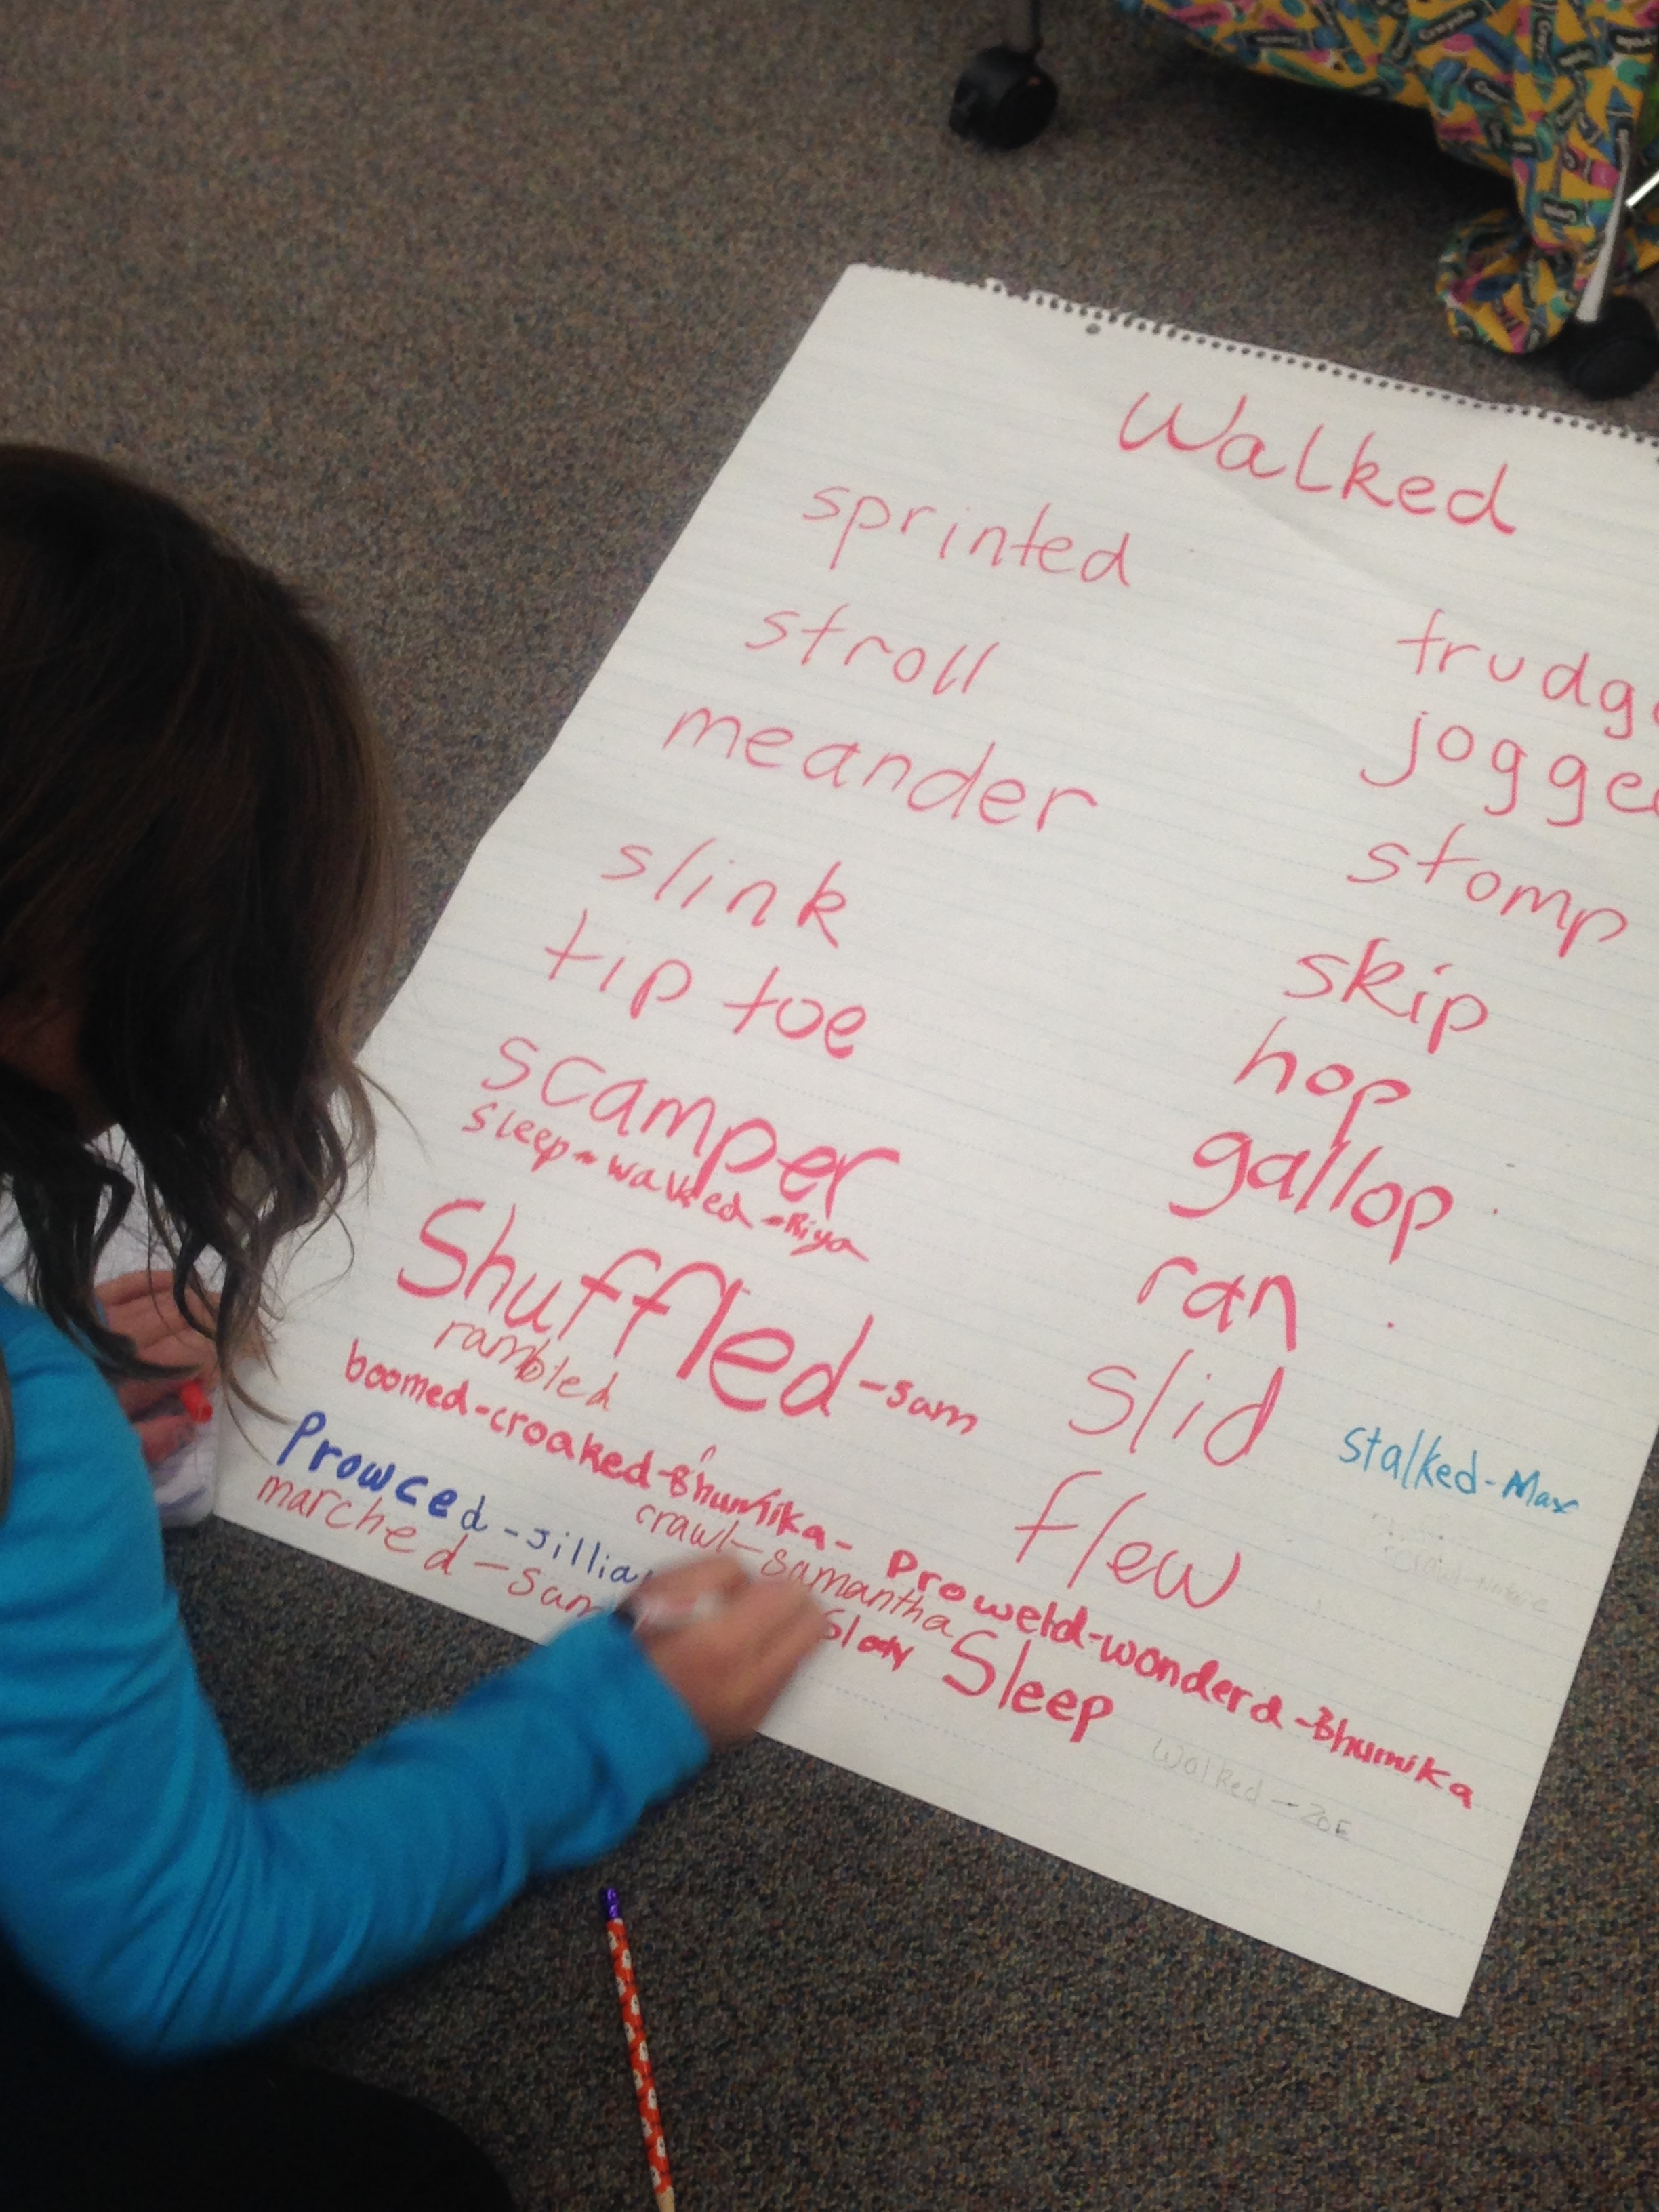 Walked
sprinted
stroll
meander
slink
tip toe
scamper
sleep-walked-Riya
Shuffled-sam
rambled
boomed-croaked-Bhumika-Prowetd-wonderd-Bhumika
Prowced-jillia
marched-sam
crawl-samantha
Sleep
trudge
jogged
stomp
skip
hop
gallop
ran
slid
flew
stalked-Max
Walked-ZOE